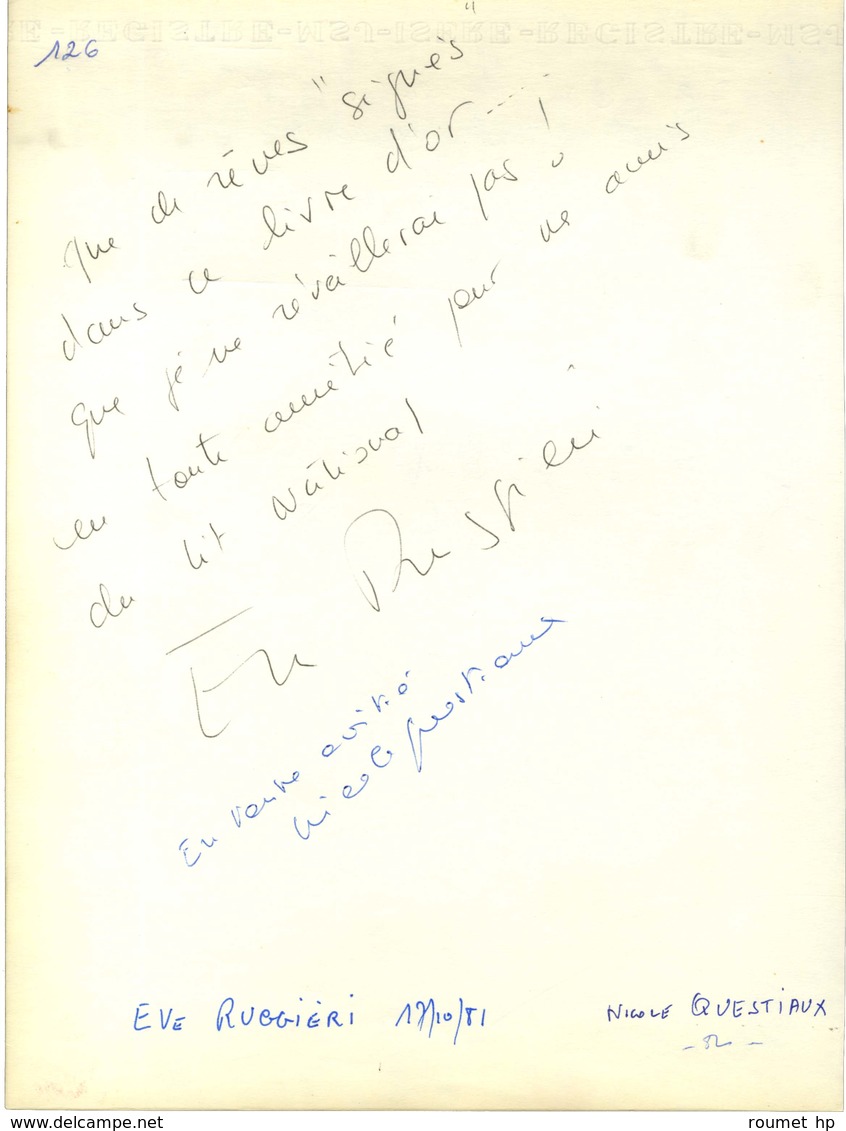 REGISTRE-MSJ-ISÈRE-REGISTRE-MSJ
126
Que de rêves "signés"
dans ce livre d'or.....
que je ne réveillerai pas !
en toute amitié pour mes amis
du lit National
Eve Ruggieri
En toute amitié
Nicole Questiaux
EVE RUGGIÈRI 17/10/81
NICOLE QUESTIAUX
roumet hp
www.delcampe.net